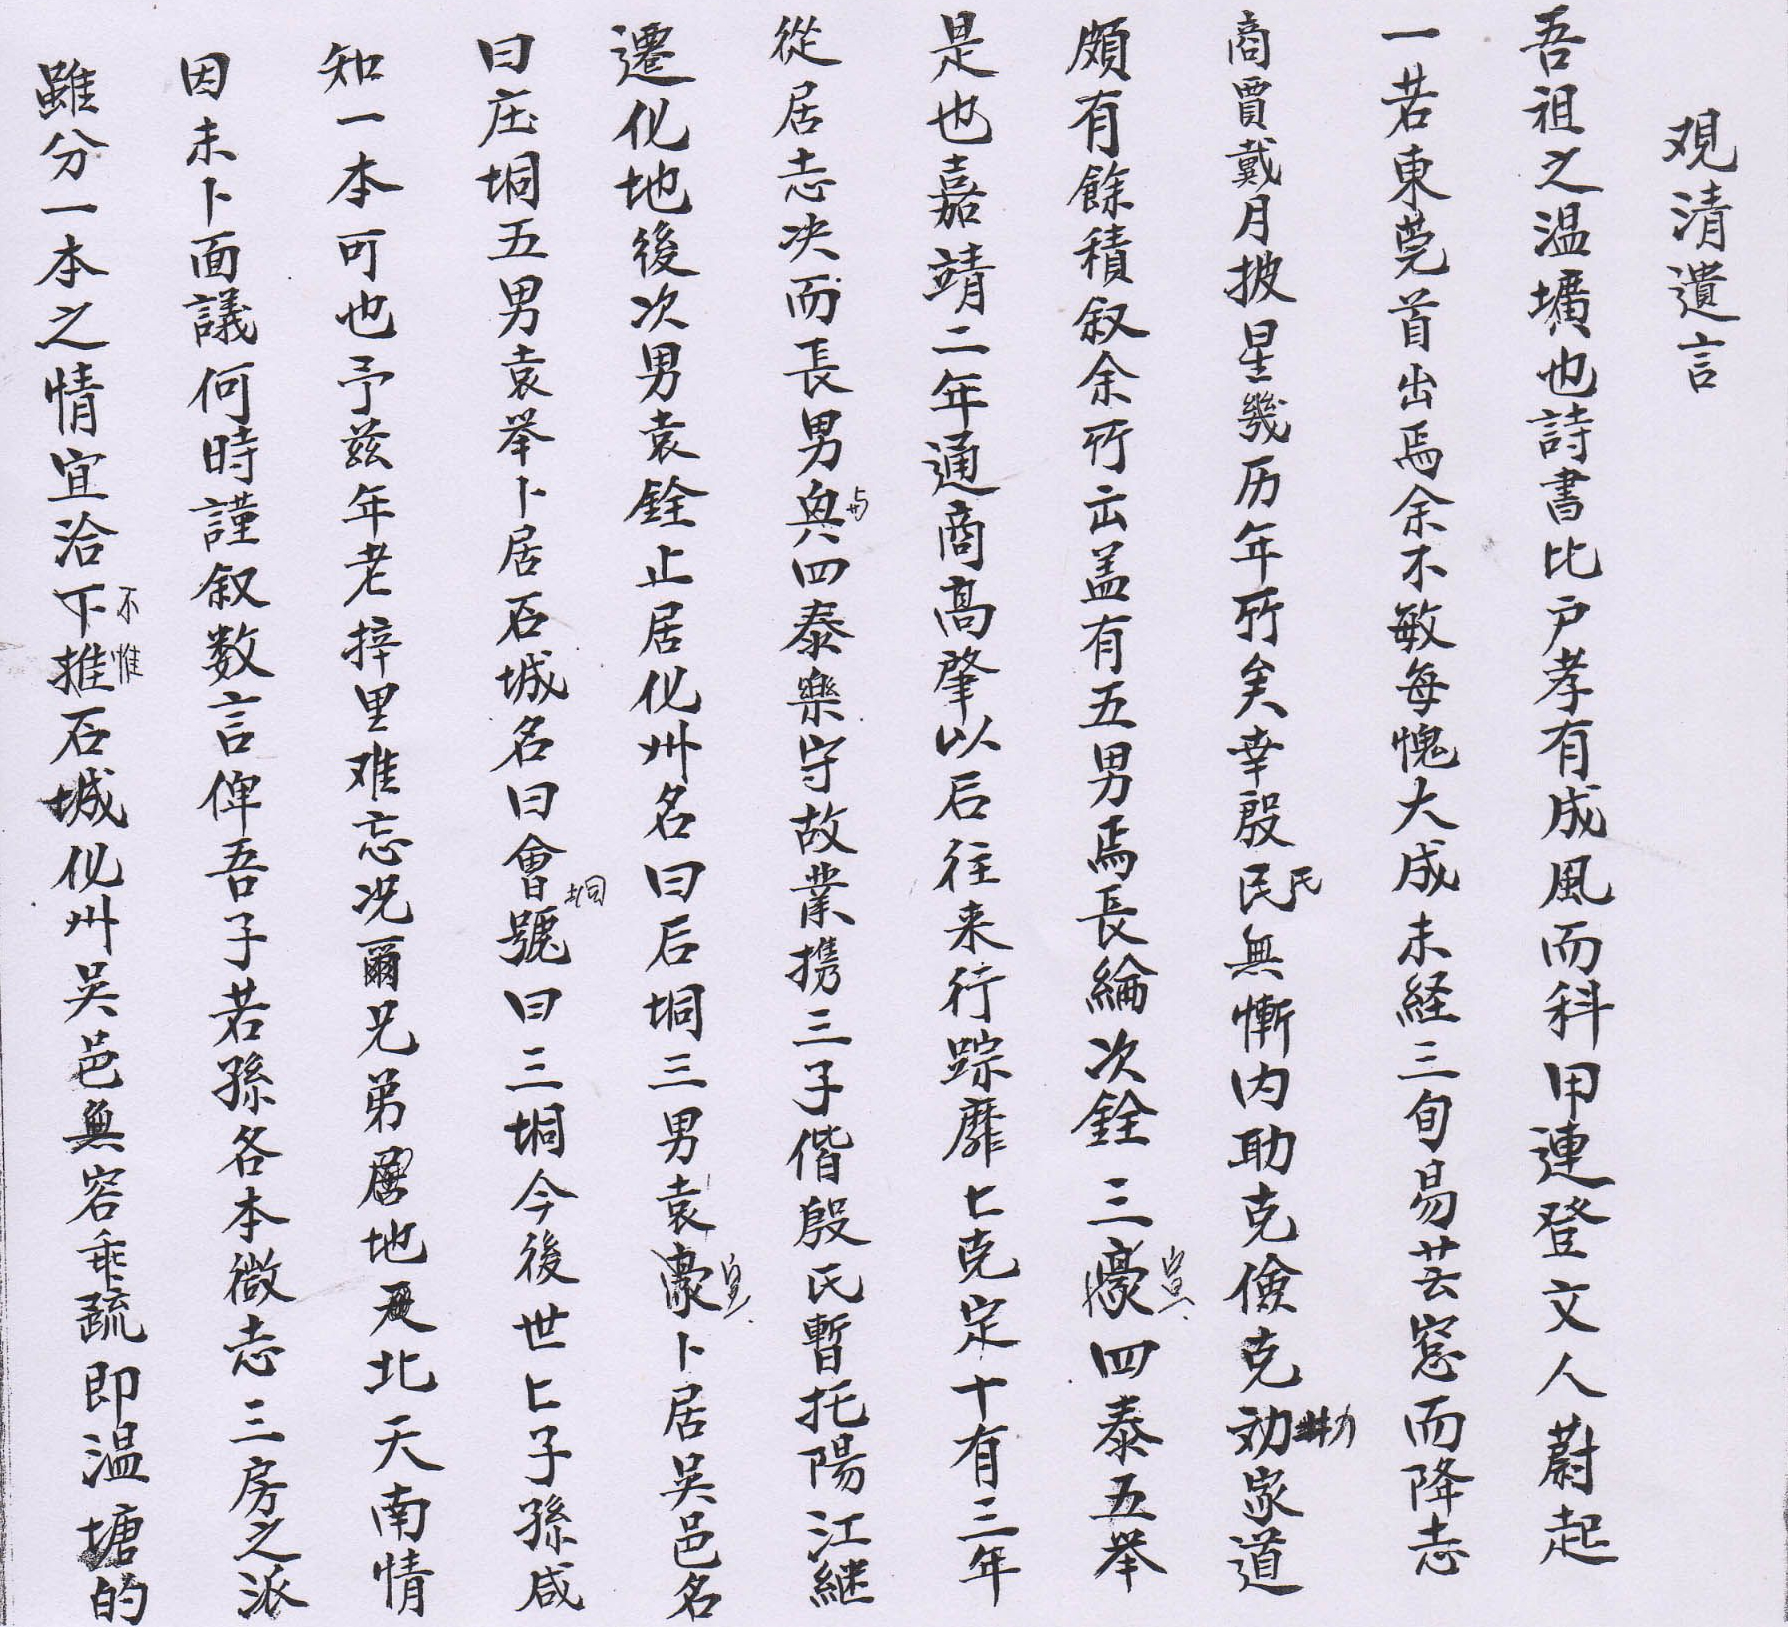 观清遺言
吾祖之温壙也詩書比户孝有成風而科甲連登文人蔚起
一若東莞首出焉余不敏每愧大成未経三旬易芸窓而降志
商賈戴月披星幾历年所矣幸殷民民無慚内助克儉克劝勤家道
頗有餘積叙余所出盖有五男焉長綸次銓三豪宣四泰五举
是也嘉靖二年通商高肇以后往来行踪靡匕克定十有三年
從居志决而長男與与四泰樂守故業携三子偕殷氏暫托陽江継
遷化地後次男袁銓止居化州名曰后垌三男袁豪宣卜居吴邑名
曰庄垌五男袁举卜居石城名曰會垌號曰三垌今後世匕子孫咸
知一本可也予兹年老梓里难忘况爾兄弟居地北天南情
因未卜面議何時謹叙数言俾吾子若孫各本微志三房之派
雖分一本之情宜洽下推不惟石城化州吴邑無容乖疏即温塘的